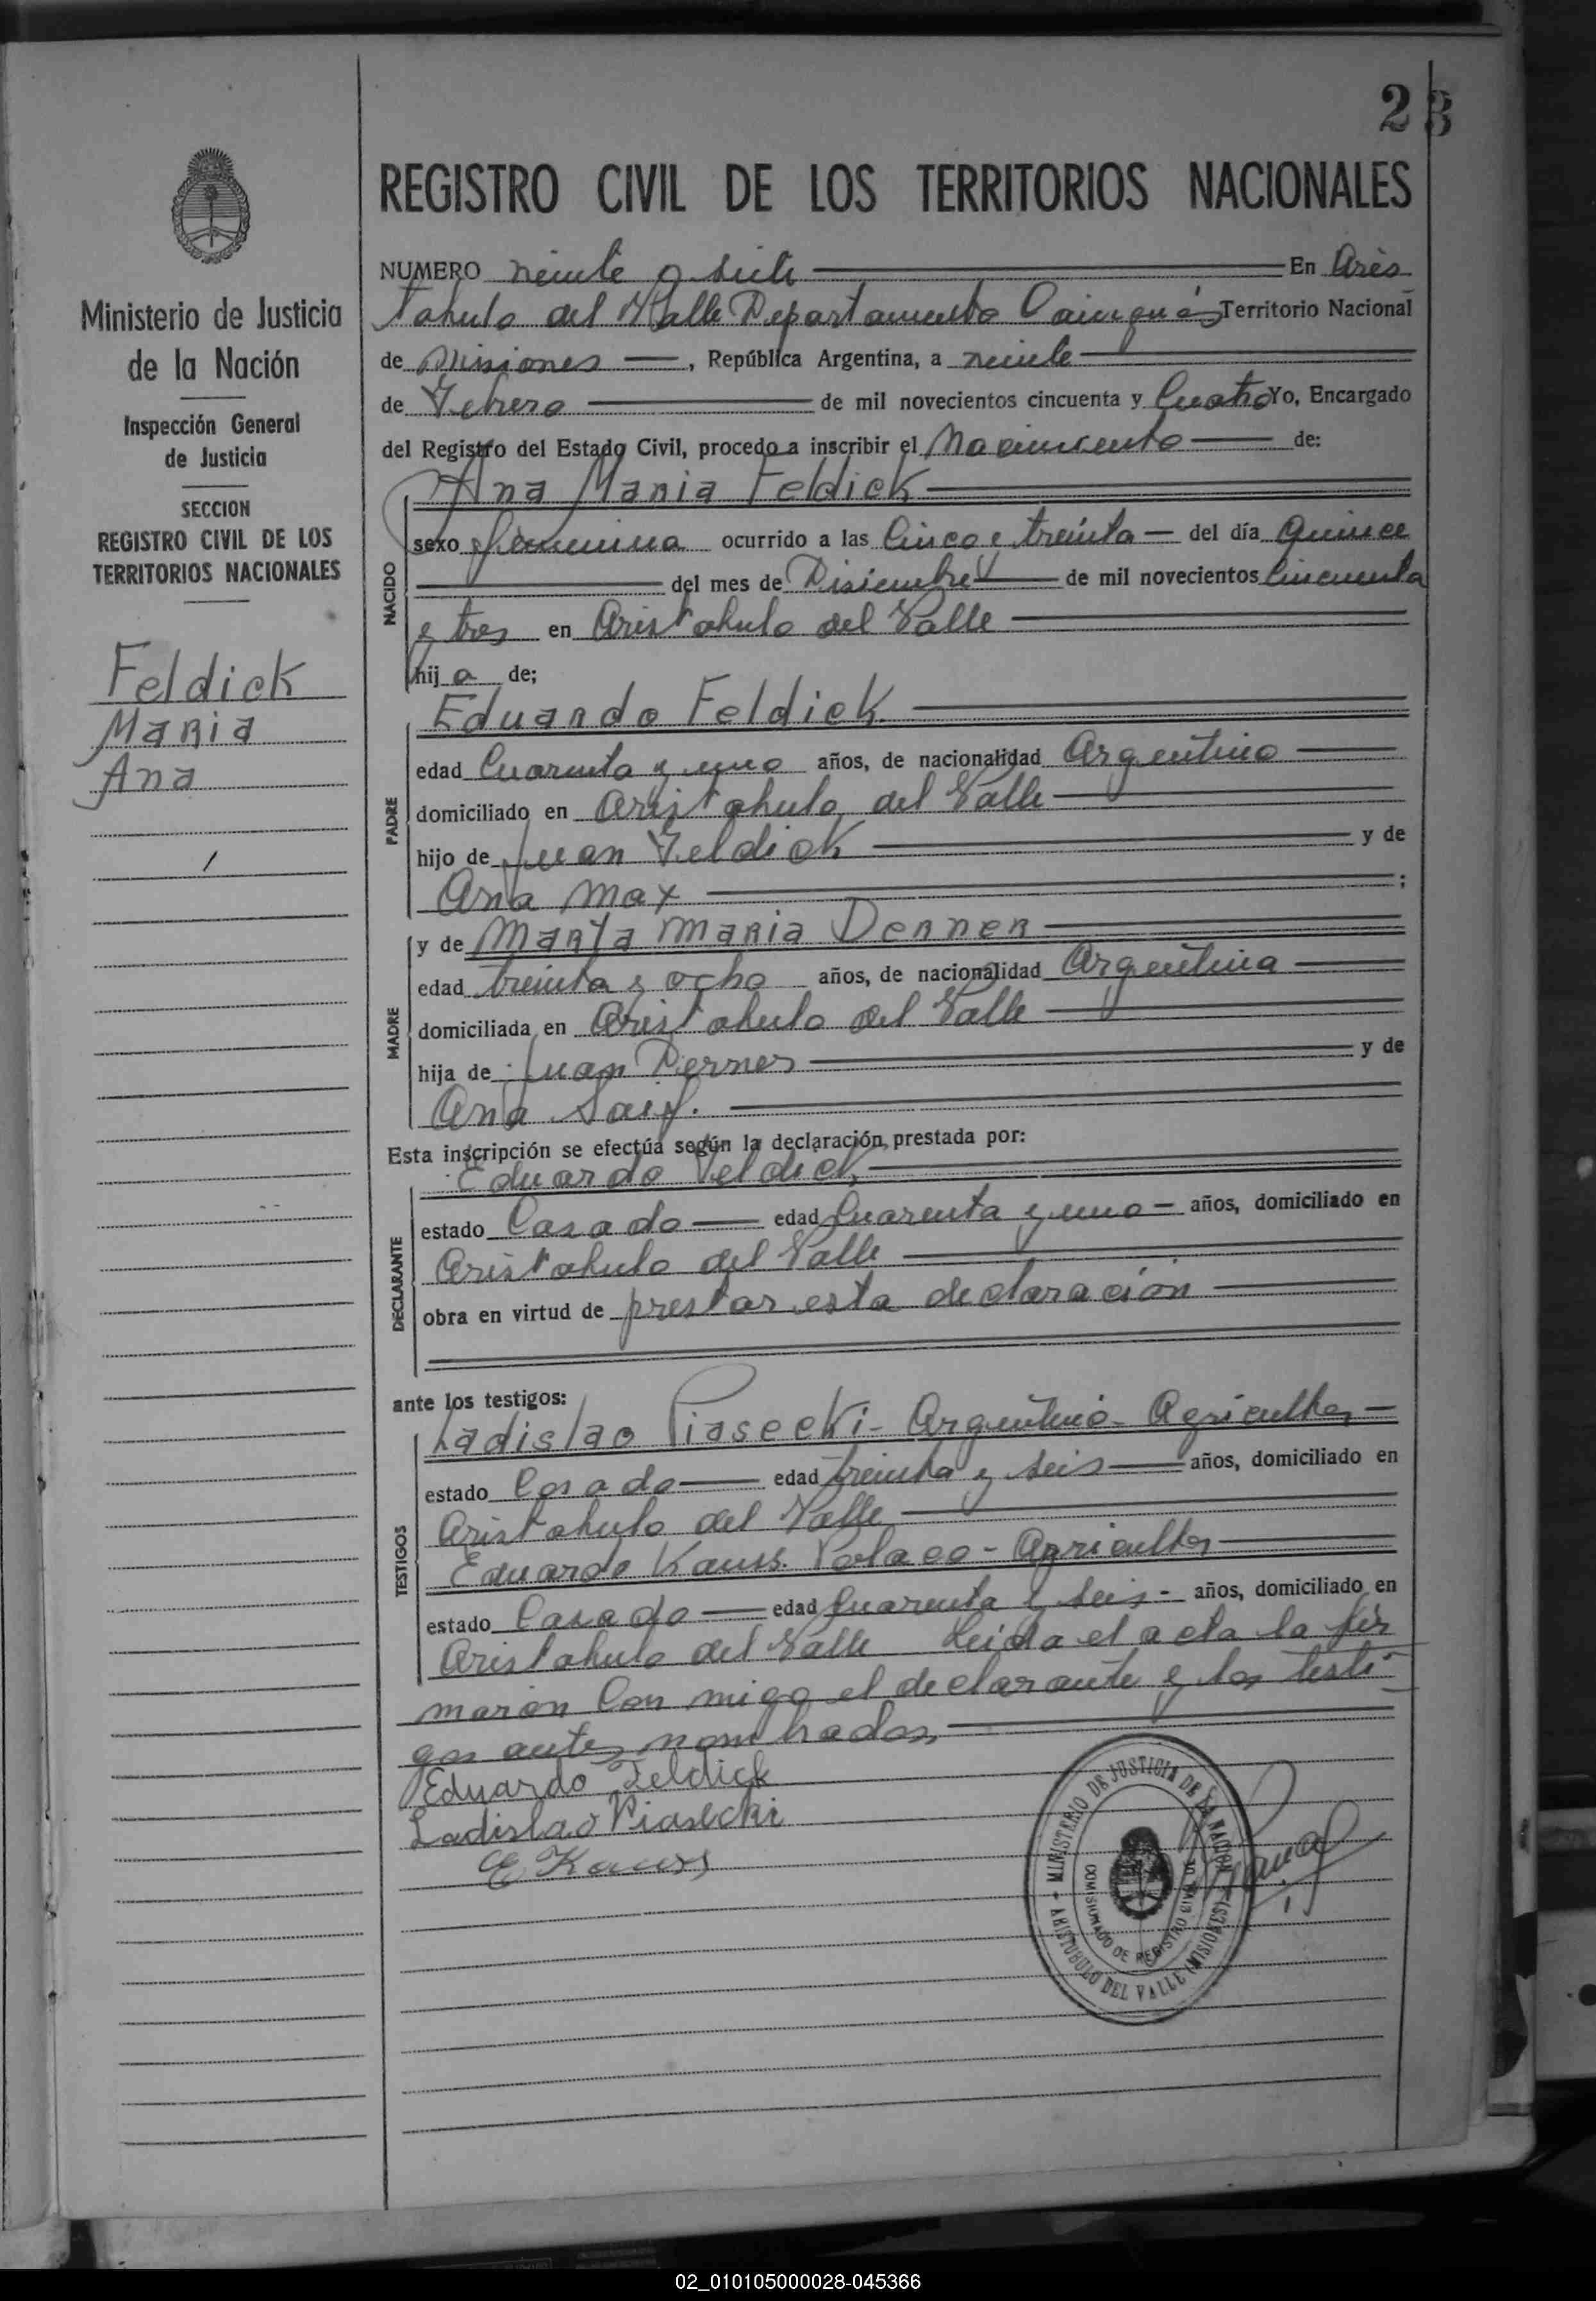 23
REGISTRO CIVIL DE LOS TERRITORIOS NACIONALES
Ministerio de Justicia
de la Nación
Inspección General
de Justicia
SECCION
REGISTRO CIVIL DE LOS
TERRITORIOS NACIONALES
Feldick
Maria
Ana
NUMERO veinte y siete En Aris
tobulo del Valle Departamento Cainguás Territorio Nacional
de Misiones, República Argentina, a veinte
de Febrero de mil novecientos cincuenta y Cuatro Yo, Encargado
del Registro del Estado Civil, procedo a inscribir el Nacimiento de:
Ana Maria Feldick
NACIDO
sexo femenina ocurrido a las Cinco y treinta del día Quince
del mes de Disiembre de mil novecientos Cincuenta
y tres en Aristobulo del Valle
hija de;
Eduardo Feldick
PADRE
edad Cuarenta y uno años, de nacionalidad Argentino
domiciliado en Aristobulo del Valle
hijo de Juan Feldick y de
Ana Max ;
y de Marta Maria Derner
MADRE
edad treinta y ocho años, de nacionalidad Argentina
domiciliada en Aristobulo del Valle
hija de Juan Derner y de
Ana
Esta inscripción se efectúa según la declaración prestada por:
Eduardo Feldick
DECLARANTE
estado Casado edad Cuarenta y uno años, domiciliado en
Aristobulo del Valle
obra en virtud de prestar esta declaración
ante los testigos:
Ladislao Piasecki - Argentino - Agricultor
TESTIGOS
estado Casado edad treinta y seis años, domiciliado en
Aristobulo del Valle
Eduardo Kauss. Polaco - Agricultor
estado Casado edad Cuarenta y seis - años, domiciliado en
Aristobulo del Valle Leida el acta la fir
maron Con migo el declarante y los testi-
gos antes nombrados,
Eduardo Feldick
Ladislao Piasecki
E Kauss
MINISTERIO DE JUSTICIA DE LA NACION
ARISTOBULO DEL VALLE (MISIONES)
COMISIONADO DE REGISTRO CIVIL
02_010105000028-045366